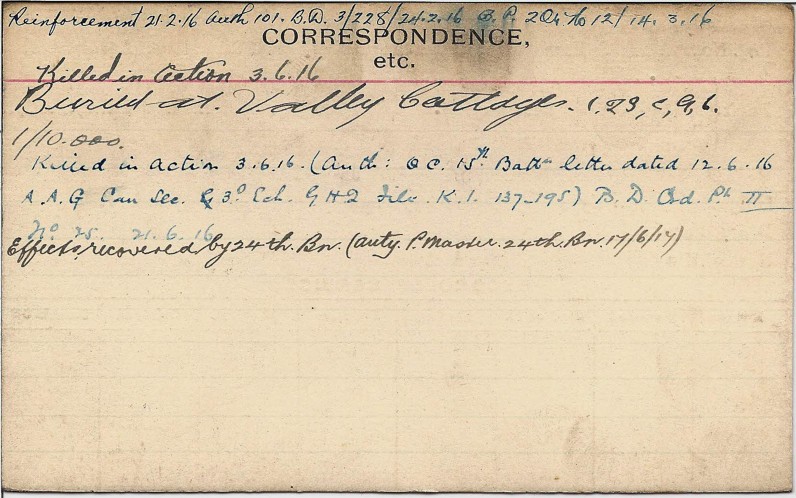 Reinforcement 21.2.16 Auth 101. B.D. 3/228/24.2.16 B.P. 2 to 12/14.3.16
CORRESPONDENCE,
etc.
Killed in Action 3.6.16
Buried at Valley Cottages. 1,23,c,9,6.
1/10.000.
Killed in action 3.6.16. (Auth: O C. 15th Battn letter dated 12.6.16
A.A.G Can Sec. G 3º Ech. G H Q File. K.1. 137-195) B.D. Ord. Pt II
No 25. 21.6.16
Effects, recovered by 24th. Bn. (auty. P. Master. 24th. Bn. 17/6/17)